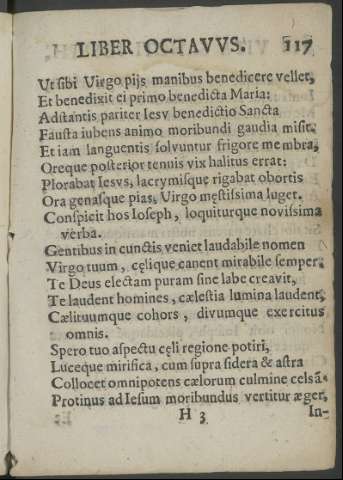 LIBER OCTAVVS. 117
Ut sibi Virgo pijs manibus benedicere vellet,
Et benedixit ei primo benedicta Maria:
Adstantis pariter Iesv benedictio Sancta
Fausta iubens animo moribundi gaudia misit.
Et iam languentis solvuntur frigore membra,
Oreque posterior tenuis vix halitus errat:
Plorabat Iesvs, lacrymisque rigabat obortis
Ora genasque pias, Virgo męstissima luget.
Conspicit hos Ioseph, loquiturque novissima
verba.
Gentibus in cunctis veniet laudabile nomen
Virgo tuum, cęlique canent mirabile semper;
Te Deus electam puram sine labe creavit,
Te laudent homines, cælestia lumina laudent,
Cælituumque cohors, divumque exercitus
omnis.
Spero tuo aspectu cęli regione potiri,
Luceque mirifica, cum supra sidera & astra
Collocet omnipotens cælorum culmine celsā.
Protinus ad Iesum moribundus vertitur æger,
H 3 In-